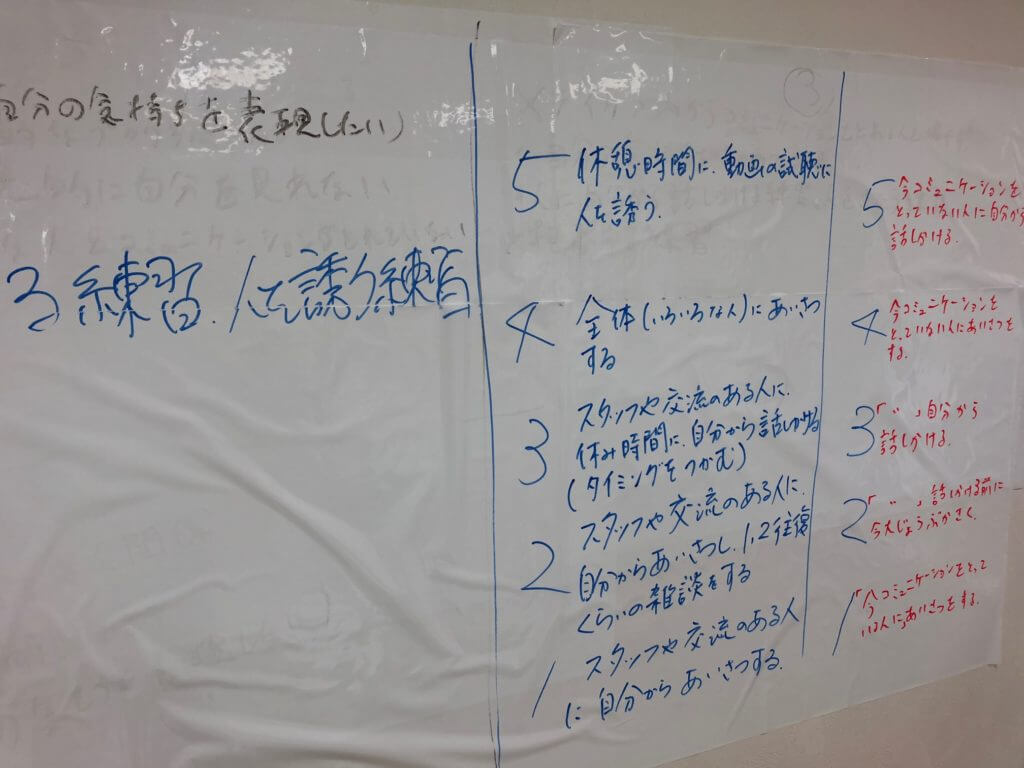 自分の気持ちを表現したい)
る練習. 人を誘う練習
③
5 休憩時間に、動画の試聴に
人を誘う.
4 全体(いろいろな人)にあいさつ
する
3 スタッフや交流のある人に.
休み時間に、自分から話しかける
(タイミングをつかむ)
2 スタッフや交流のある人に.
自分からあいさつし、1,2往復
くらいの雑談をする
1 スタッフや交流のある人
に自分からあいさつする.
5 今コミュニケーションを
とっていない人に自分から
話しかける.
4 今コミュニケーションを
とっていない人にあいさつを
する.
3 「〃」自分から
話しかける.
2 「〃」話しかける前に
今大じょうぶかきく.
1 「今コミュニケーションをとって
いる人に」あいさつをする.